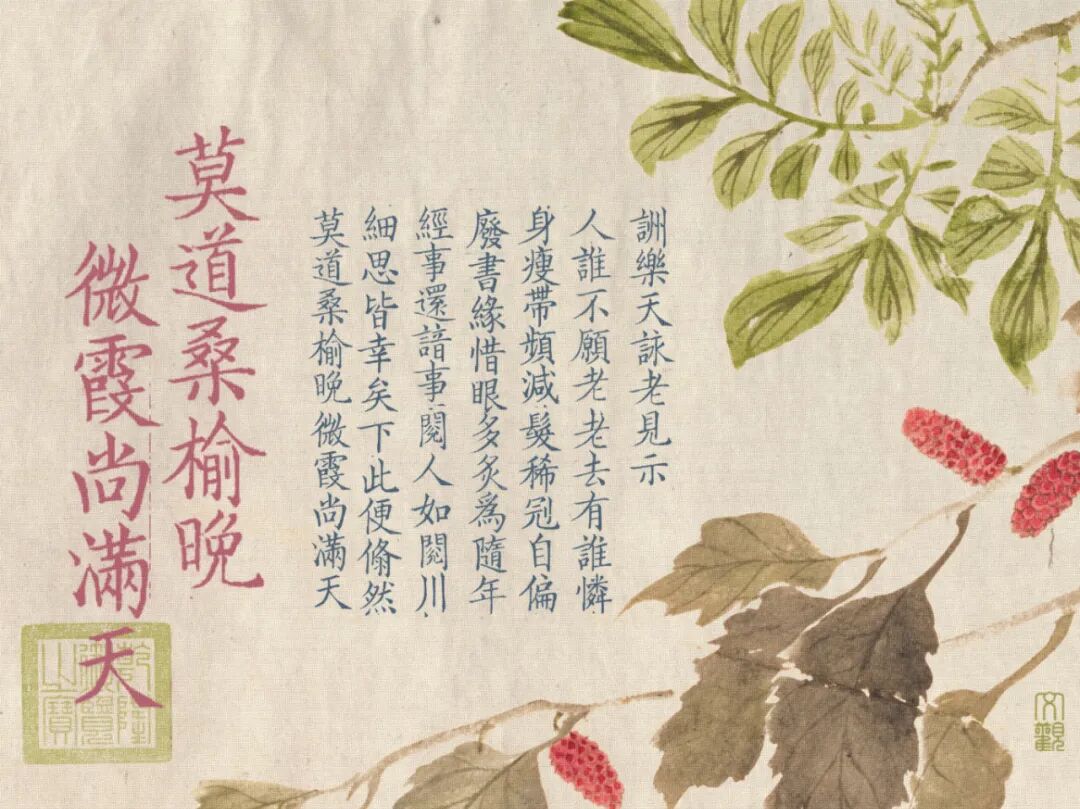 詶樂天詠老見示
人誰不願老老去有誰憐
身瘦帶頻減髮稀冠自偏
廢書緣惜眼多灸爲隨年
經事還諳事閱人如閱川
細思皆幸矣下此便翛然
莫道桑榆晚微霞尚滿天
莫道桑榆晚
微霞尚滿天
乾隆
御覽
之寶
文觀